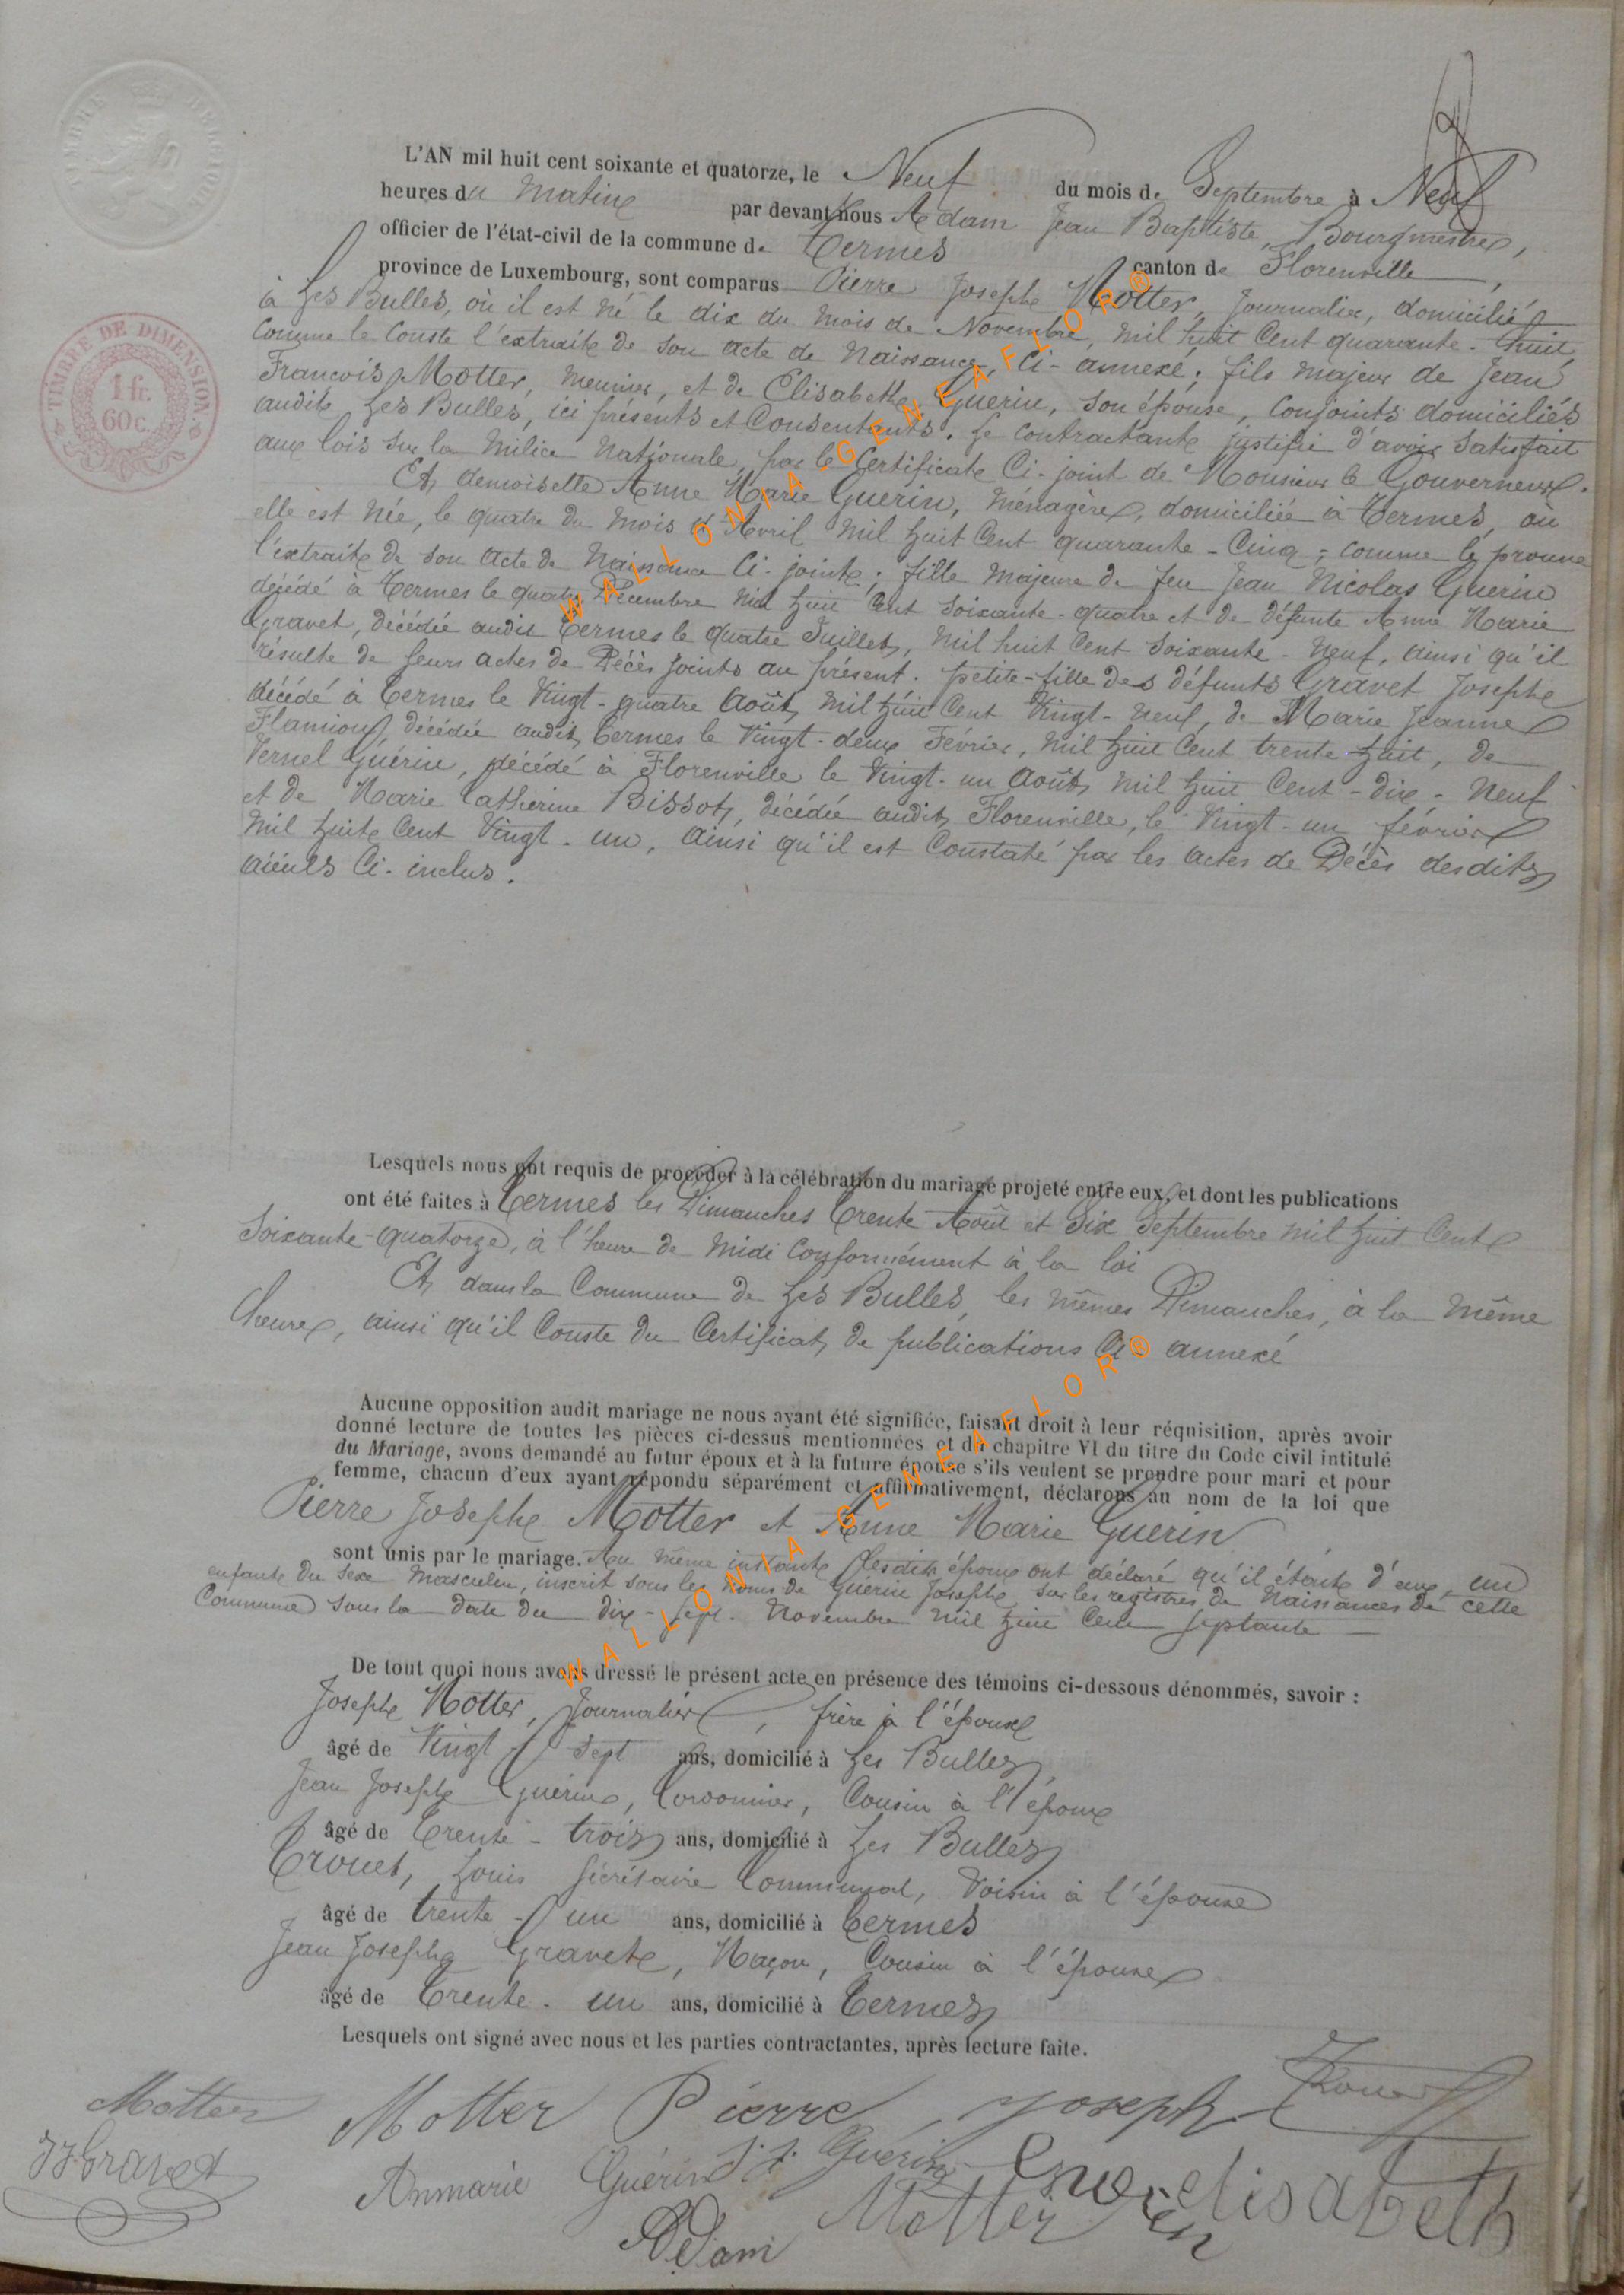 TIMBRE BELGIQUE
TIMBRE DE DIMENSION.
1 fr.
60c.
L'AN mil huit cent soixante et quatorze, le Neuf du mois de Septembre à Neuf
heures du matin par devant nous Adam Jean Baptiste, Bourgmestre,
officier de l'état-civil de la commune de Termes canton de Florenville,
province de Luxembourg, sont comparus Pierre Joseph Motter, Journalier, domicilié
à Les Bulles, où il est né le dix du mois de Novembre, mil huit Cent quarante-huit,
comme le Conste l'extrait de son acte de Naissance, Ci-annexé; fils majeur de Jean
François Motter, meunier, et de Elisabeth Guerin, son épouse, conjoints domiciliés
audit Les Bulles, ici présents et Consentants. Le contractant justifie d'avoir Satisfait
aux lois sur la Milice Nationale, par le Certificat Ci-joint de Monsieur le Gouverneur.
Et demoiselle Anne Marie Guerin, Ménagère, domiciliée à Termes, où
elle est née, le quatre du mois d'Avril mil huit Cent quarante-Cinq; comme le prouve
l'extrait de son acte de Naissance Ci-joint; fille majeure de feu Jean Nicolas Guerin
décédé à Termes le quatre Décembre mil huit Cent soixante-quatre et de défunte Anne Marie
Gravet, décédée audit Termes le quatre Juillet, mil huit Cent Soixante-Neuf, ainsi qu'il
résulte de leurs actes de Décès joints au présent. petite-fille des défunts Gravet Joseph
décédé à Termes le Vingt-quatre Août mil huit Cent Vingt-neuf, de Marie Jeanne
Flamion décédée audit Termes le Vingt-deux Février, mil huit Cent trente huit, de
Vernel Guérin, décédé à Florenville le Vingt-un Août mil huit Cent-dix-Neuf
et de Marie Catherine Bissot, décédée audit Florenville, le Vingt-un février
mil huit Cent Vingt-un, ainsi qu'il est Constaté par les actes de Décès desdits
aïeuls Ci-inclus.
Lesquels nous ont requis de procéder à la célébration du mariage projeté entre eux, et dont les publications
ont été faites à Termes les Dimanches trente Août et Six Septembre mil huit Cent
Soixante-quatorze, à l'heure de Midi Conformément à la loi
Et dans la Commune de Les Bulles, les mêmes Dimanches, à la même
heure, ainsi qu'il Conste du Certificat de publications Ci-annexé
Aucune opposition audit mariage ne nous ayant été signifiée, faisant droit à leur réquisition, après avoir
donné lecture de toutes les pièces ci-dessus mentionnées et du chapitre VI du titre du Code civil intitulé
du Mariage, avons demandé au futur époux et à la future épouse s'ils veulent se prendre pour mari et pour
femme, chacun d'eux ayant répondu séparément et affirmativement, déclarons au nom de la loi que
Pierre Joseph Motter et Anne Marie Guerin
sont unis par le mariage. Au même instant lesdits époux ont déclaré qu'il était d'eux, un
enfant du sexe Masculin, inscrit sous les noms de Guérin Joseph sur les registres de Naissances de cette
Commune sous la date du dix-sept Novembre mil huit Cent septante
De tout quoi nous avons dressé le présent acte en présence des témoins ci-dessous dénommés, savoir :
Joseph Motter, Journalier, frère à l'époux
âgé de Vingt-sept ans, domicilié à Les Bulles
Jean Joseph Guérin, Cordonnier, Cousin à l'époux
âgé de Trente-trois ans, domicilié à Les Bulles
Trouet, Louis Sécrétaire Communal, Voisin à l'épouse
âgé de trente-un ans, domicilié à Termes
Jean Joseph Gravet, Maçon, Cousin à l'épouse
âgé de Trente-un ans, domicilié à Termes
Lesquels ont signé avec nous et les parties contractantes, après lecture faite.
Motter Motter Pierre Joseph Trouet
JJ Gravet Anmarie Guérin J. J. Guérin Elisabeth
Adam Motter
WALLONIA-GENEAFLOR®
WALLONIA-GENEAFLOR®